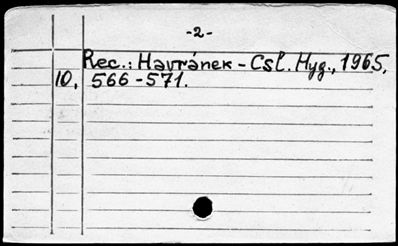 -2-
Rec.: Havránek - Csl. Hyg., 1965,
10, 566-571.